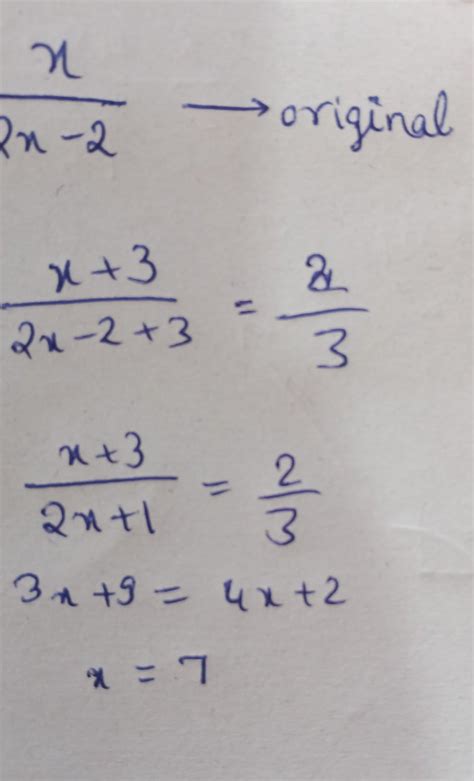 x
2x-2 → original
x+3
2x-2+3 = 2
3
x+3
2x+1 = 2
3
3x+9 = 4x+2
x = 7